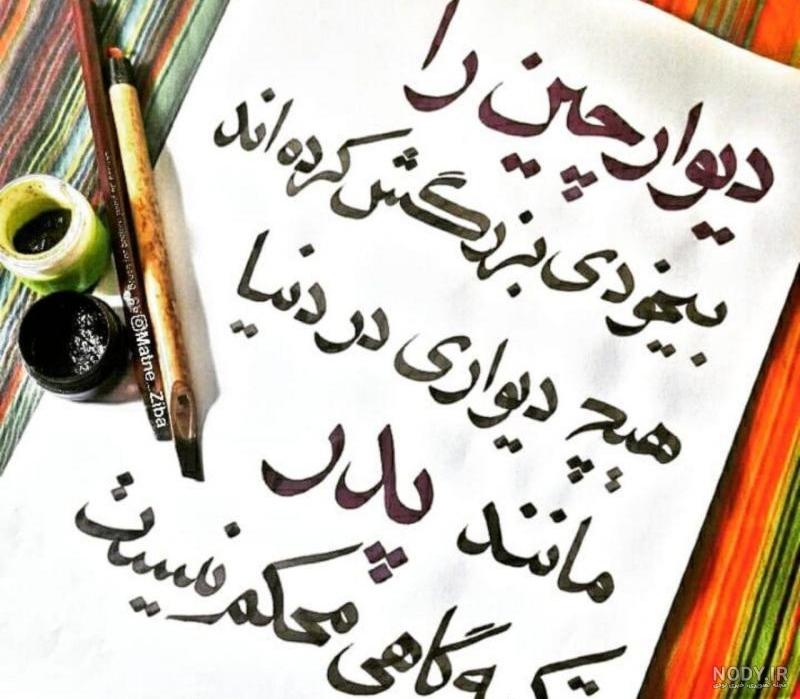 دیوار چین را
بیخودی بزرگش کرده اند
هیچ دیواری در دنیا
مانند پدر
تکیه گاهی محکم نیست
@Matne_Ziba
NODY.IR